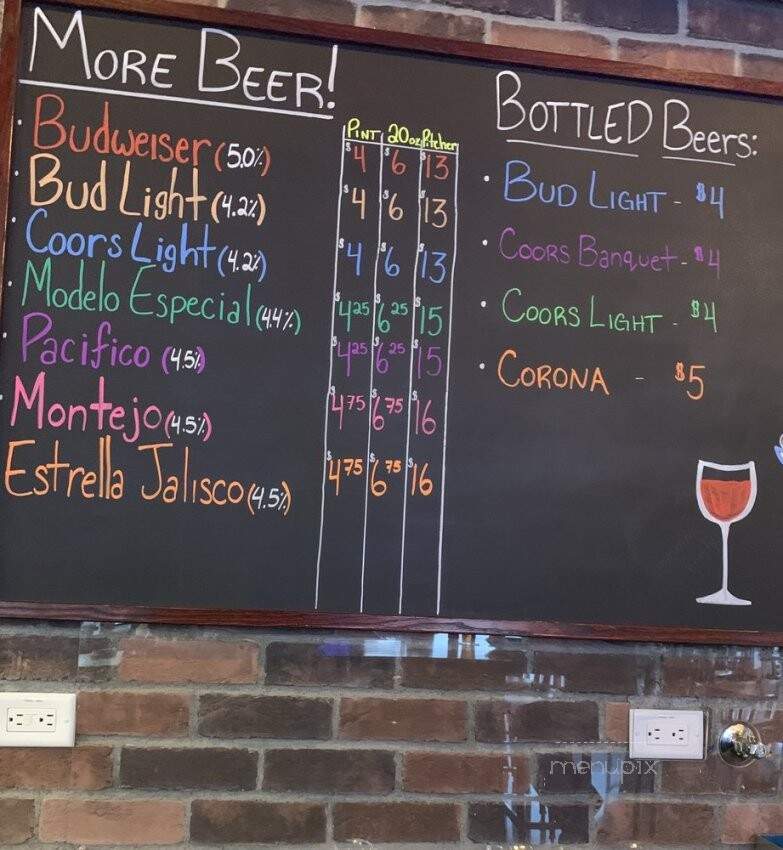 MORE BEER!
PINT 20oz Pitcher
Budweiser (5.0%) $4 $6 $13
Bud Light (4.2%) $4 $6 $13
Coors Light (4.2%) $4 $6 $13
Modelo Especial (4.4%) $4.25 $6.25 $15
Pacifico (4.5%) $4.25 $6.25 $15
Montejo (4.5%) $4.75 $6.75 $16
Estrella Jalisco (4.5%) $4.75 $6.75 $16
BOTTLED Beers:
• BUD LIGHT - $4
• COORS Banquet - $4
• COORS LIGHT - $4
• CORONA - $5
menupix